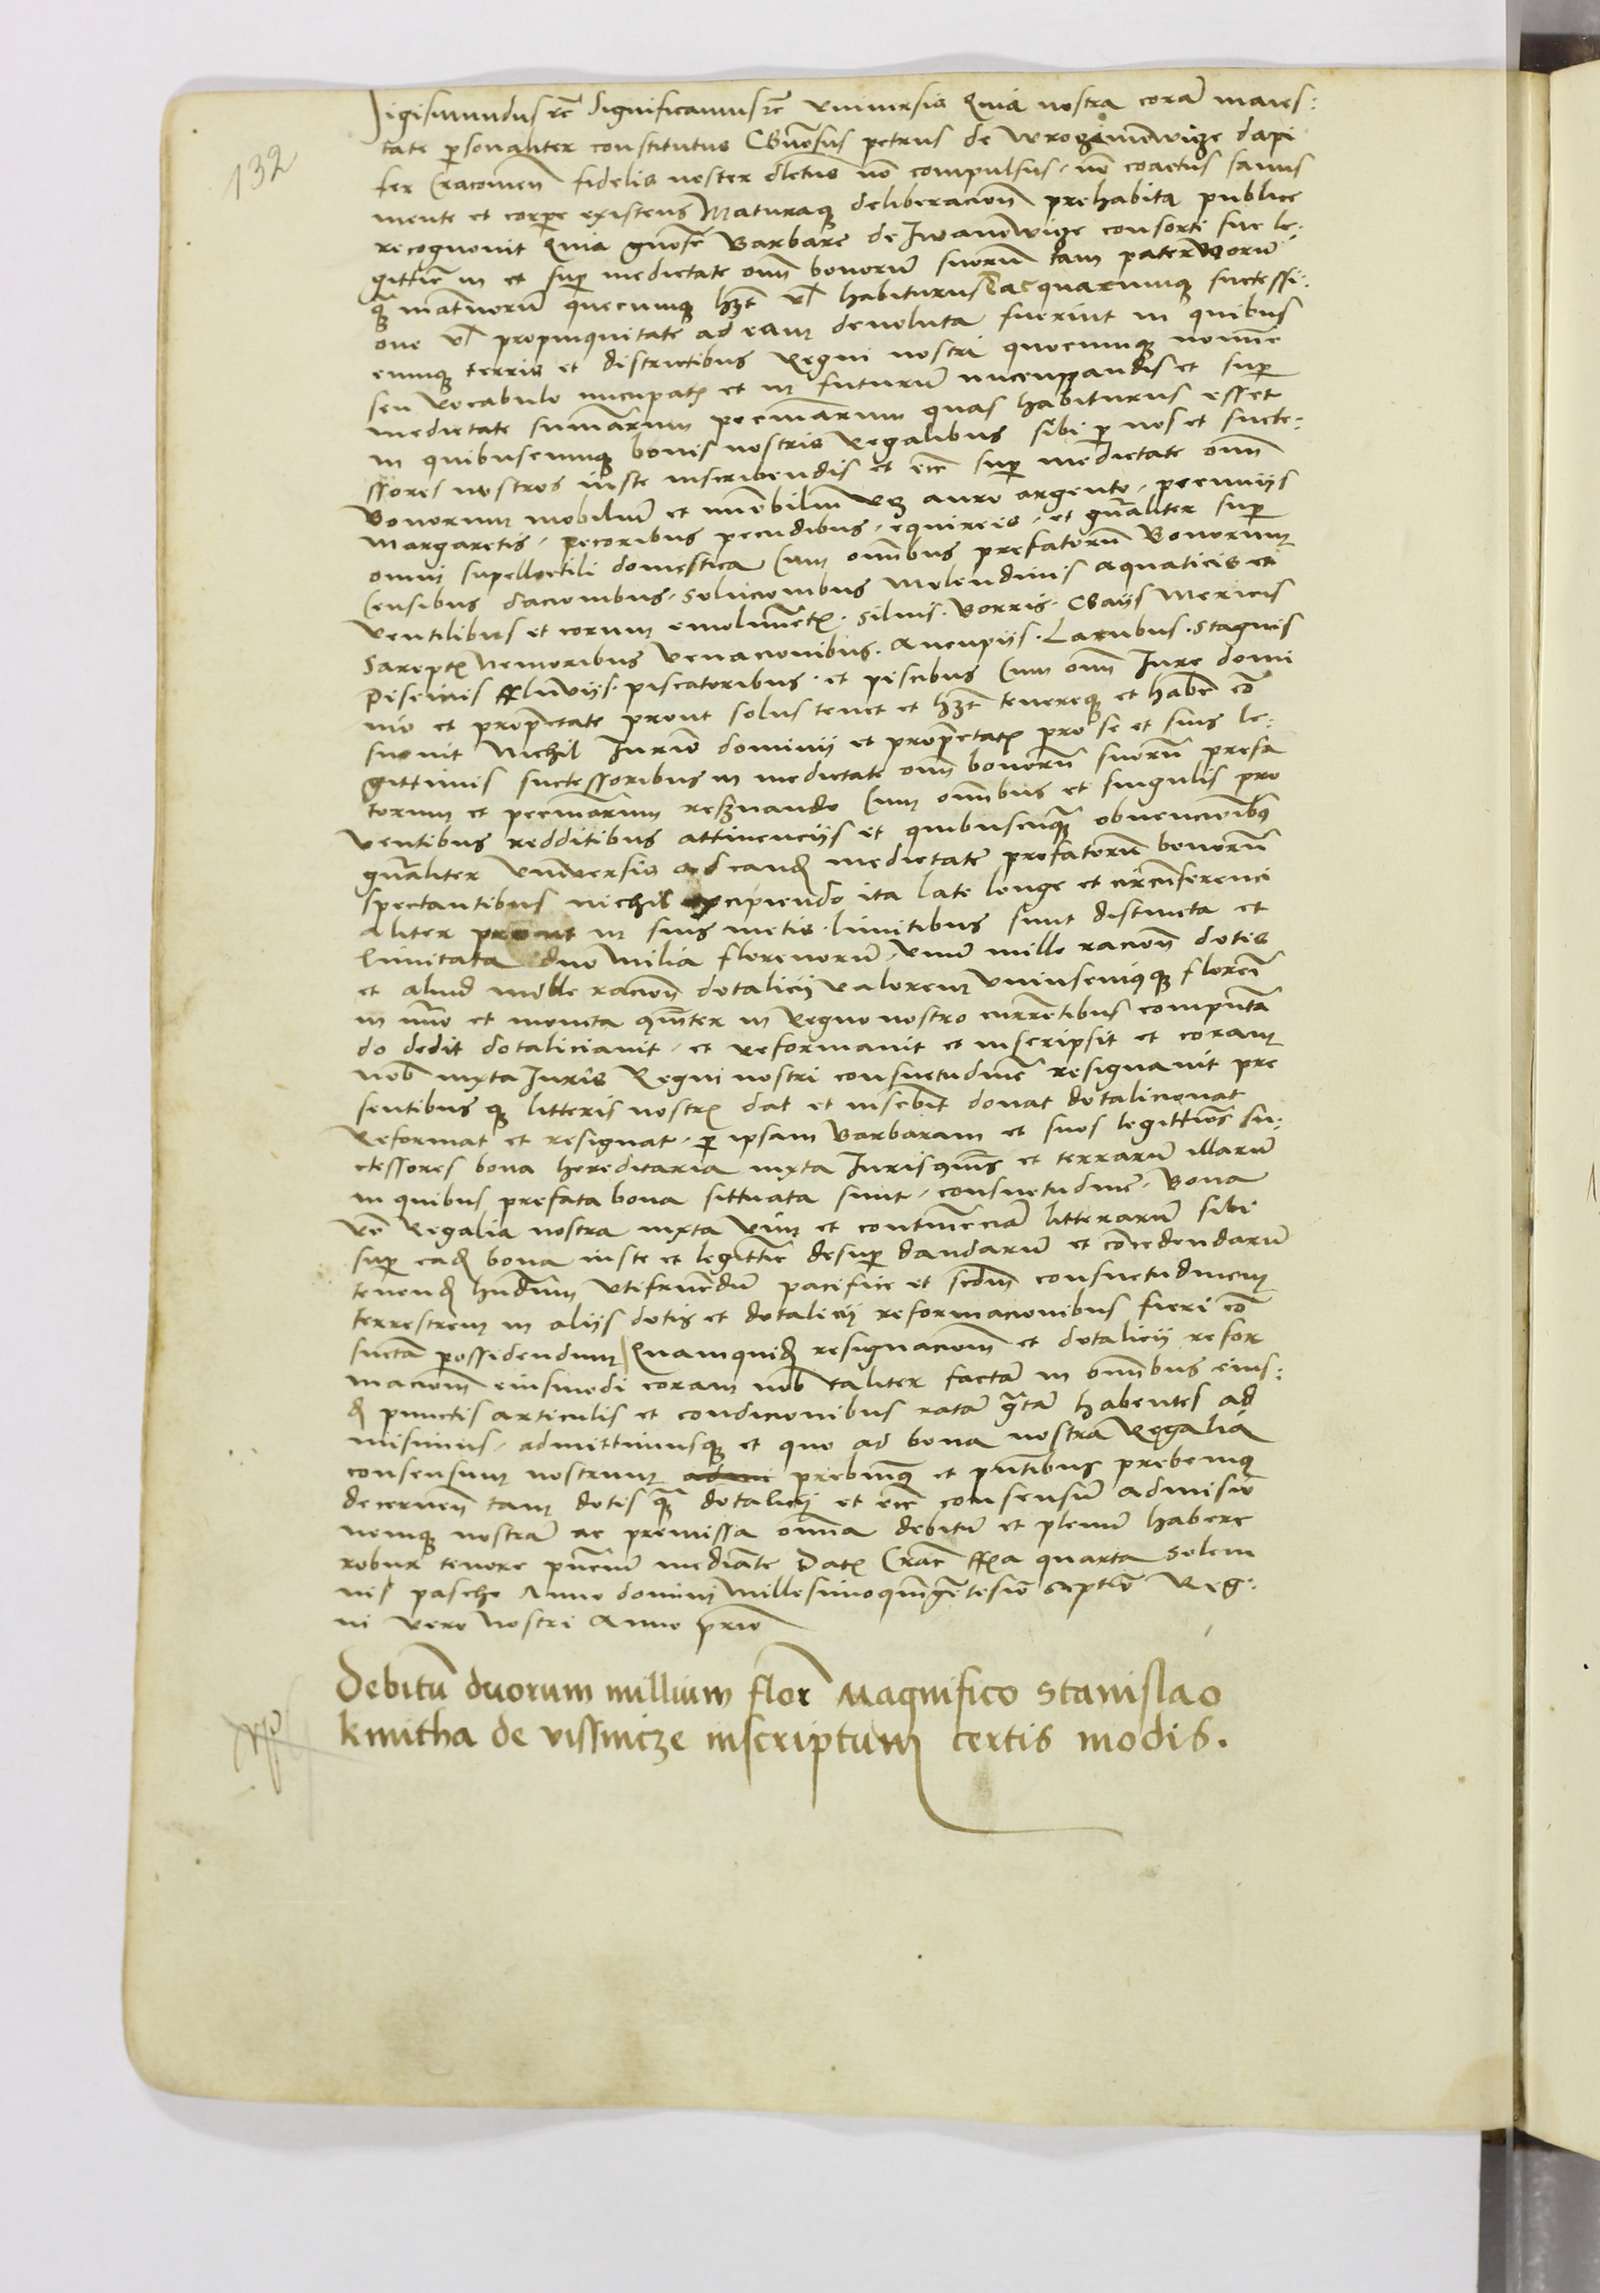 132
Sigismundus rc̄ Significamus rc̄ vniuersis Quia nostra coram̄ maies:
tate personaliter constitutus Gn̄erosus petrus de wrogeniewicze dapi
fer Cracouien̄ fidelis noster dilectus no͞ compulsus, no͞ coactus sanus
mente et corpore existens Maturaque deliberacione prehabita publice
recognouit Quia gn̄ose Barbare de Iwanowicze consorti sue le:
gittime in et super medietate omn̄ bonorum̄ suorum̄ tam paternorum̄
quam maternorum̄ quecumque habet vel habiturus ac quarumque suctessi:
one vel propinquitate ad eam deuoluta fuerint in quibus
cumque terris et districtibus Regni nostri quocumque nomine
seu vocabulo nucupatis et in futurum̄ nucuppandis et super
medietate summarum pecuniarum quas habiturus esset
in quibuscumque bonis nostris Regalibus sibi per nos et sucte:
ssores nostros iuste inscribendis et ecc̄ super medietate omn̄
Bonorum mobilium̄ et immobilium vz auro argento, pecuniis
Margaretis, pecoribus pecudibus, equireis, et gn̄aliter super
omni supellectili domestica Cum omnibus prefatorum̄ Bonorum
Censibus dacionibus, Solucionibus Molendinis Aquaticis et
Ventilibus et eorum emolumentis. Siluis. Borris. Gaiis Mericis
Sareptis Nemoribus Venacionibus. Aucupiis. Lacubus. Stagnis
Piscinis ffluuiis. piscatoribus. et piscibus Cum omn̄ Iure domi
nio et proprietate prout solus tenet et habet tenereque et habere con̄
sueuit Nichil Iuris dominii et proprietatis pro se et suis le:
gittimis suctessoribus in medietate omn̄ bonorum̄ suorum̄ prefa
torum et pecuniarum reseruando Cum omnibus et singulis pro
uentibus redditibus attinenciis et quibuscumque obuencionibus
gn̄aliter Vniuersis ad eandem medietatem̄ prefatorum̄ bonorum̄
spectantibus nichil excipiendo ita late longe et circumferenci
aliter prout in suis metis. limitibus sunt distincta et
limitata duo Milia florenorum̄, vnum̄ mille racione dotis
et aliud mille racione dotalicii valorem vniuscuiusque floreni
in numero et moneta communiter in Regno nostro currentibus computan
do dedit dotaliciauit, et reformauit et inscripsit et coram
nob̄ iuxta Iuris Regni nostri consuetudinem̄ resignauit pre
sentibusque litteris nostris dat et inscribit donat dotalicionat
Reformat et resignat, per ipsam Barbaram et suos legittimos su:
ctessores bona hereditaria iuxta Iuris communis et terrarum̄ illarum̄
in quibus prefata bona sittuata sunt, consuetudinem̄, Bona
vero Regalia nostra iuxta vim et continenciam̄ litterarum̄ sibi
super eadem bona iuste et legittime desuper dandarum̄ et concedendarum̄
tenendum habendum vtifruendum̄ pacifice et secundum consuetudinem
terrestrem in aliis dotis et dotalicii reformacionibus fieri con̄
suetam̄ possidendum Quamquidem resignacionem et dotalicii refor
macionem eiusmodi coram nob̄ taliter factam̄ in omnibus eius:
dem punctis articulis et condicionibus ratam̄ gratam̄ habentes ad
misimus, admittimusque et quo ad bona nostra Regalia
consensum nostrum admi prebuimus et presentibus prebemus
decernentes tam dotis quam dotalicii et ecc̄ consensum̄ admissio
nemque nostram̄ ac premissa omnia debitum̄ et plenum̄ habere
robur tenore presencium mediante Datis Crac̄ fferia quarta Solem
nis pasche Anno domini Millesimoquingentesimo septimo Reg:
ni vero nostri Anno primo
Debitum̄ duorum millium flor̄ Magnifico Stanislao
kmitha de vissnicze inscriptum certis modis.